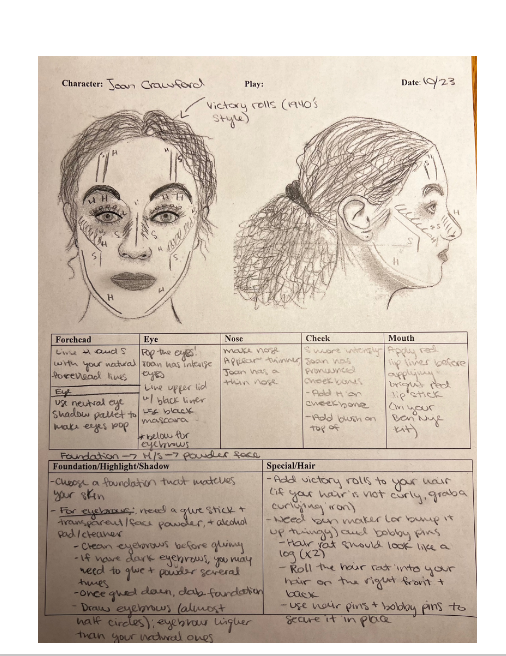 Character: Joan Crawford Play: Date: 10/23
Victory rolls (1940's
style)
H
S
H
S
H H
H H
S
S
H
H
S
H
S
H
Forehead
Line H and S
with your natural
forehead lines
Eye
use neutral eye
shadow pallet to
make eyes pop
Eye
Pop the eyes
Joan has intense
eyes
Line upper lid
w/ black liner
use black
mascara
* below the
eyebrows
Nose
Make nose
Appear thinner
Joan has a
thin nose
Cheek
S more intensly
Joan has
pronounced
cheekbones
- Add H on
cheekbone
- Add blush on
top of
Mouth
Apply red
lip liner before
applying
bright red
lip stick
(in your
Ben Nye
kit)
Foundation → H/S → powder face
Foundation/Highlight/Shadow
- Choose a foundation that matches
your skin
- For eyebrows: need a glue stick +
transparent/face powder, + alcohol
pad/cleaner
- Clean eyebrows before gluing
- If have dark eyebrows, you may
need to glue + powder several
times
- once glued down, dab foundation
- Draw eyebrows (almost
half circles); eyebrow higher
than your natural ones
Special/Hair
- Add victory rolls to your hair
(if your hair is not curly, grab a
curlying iron)
- Need bun maker (or bump it
up thingy) and bobby pins
- Hair rat should look like a
log (x2)
- Roll the hair rat into your
hair on the right front +
back
- use hair pins + bobby pins to
secure it in place